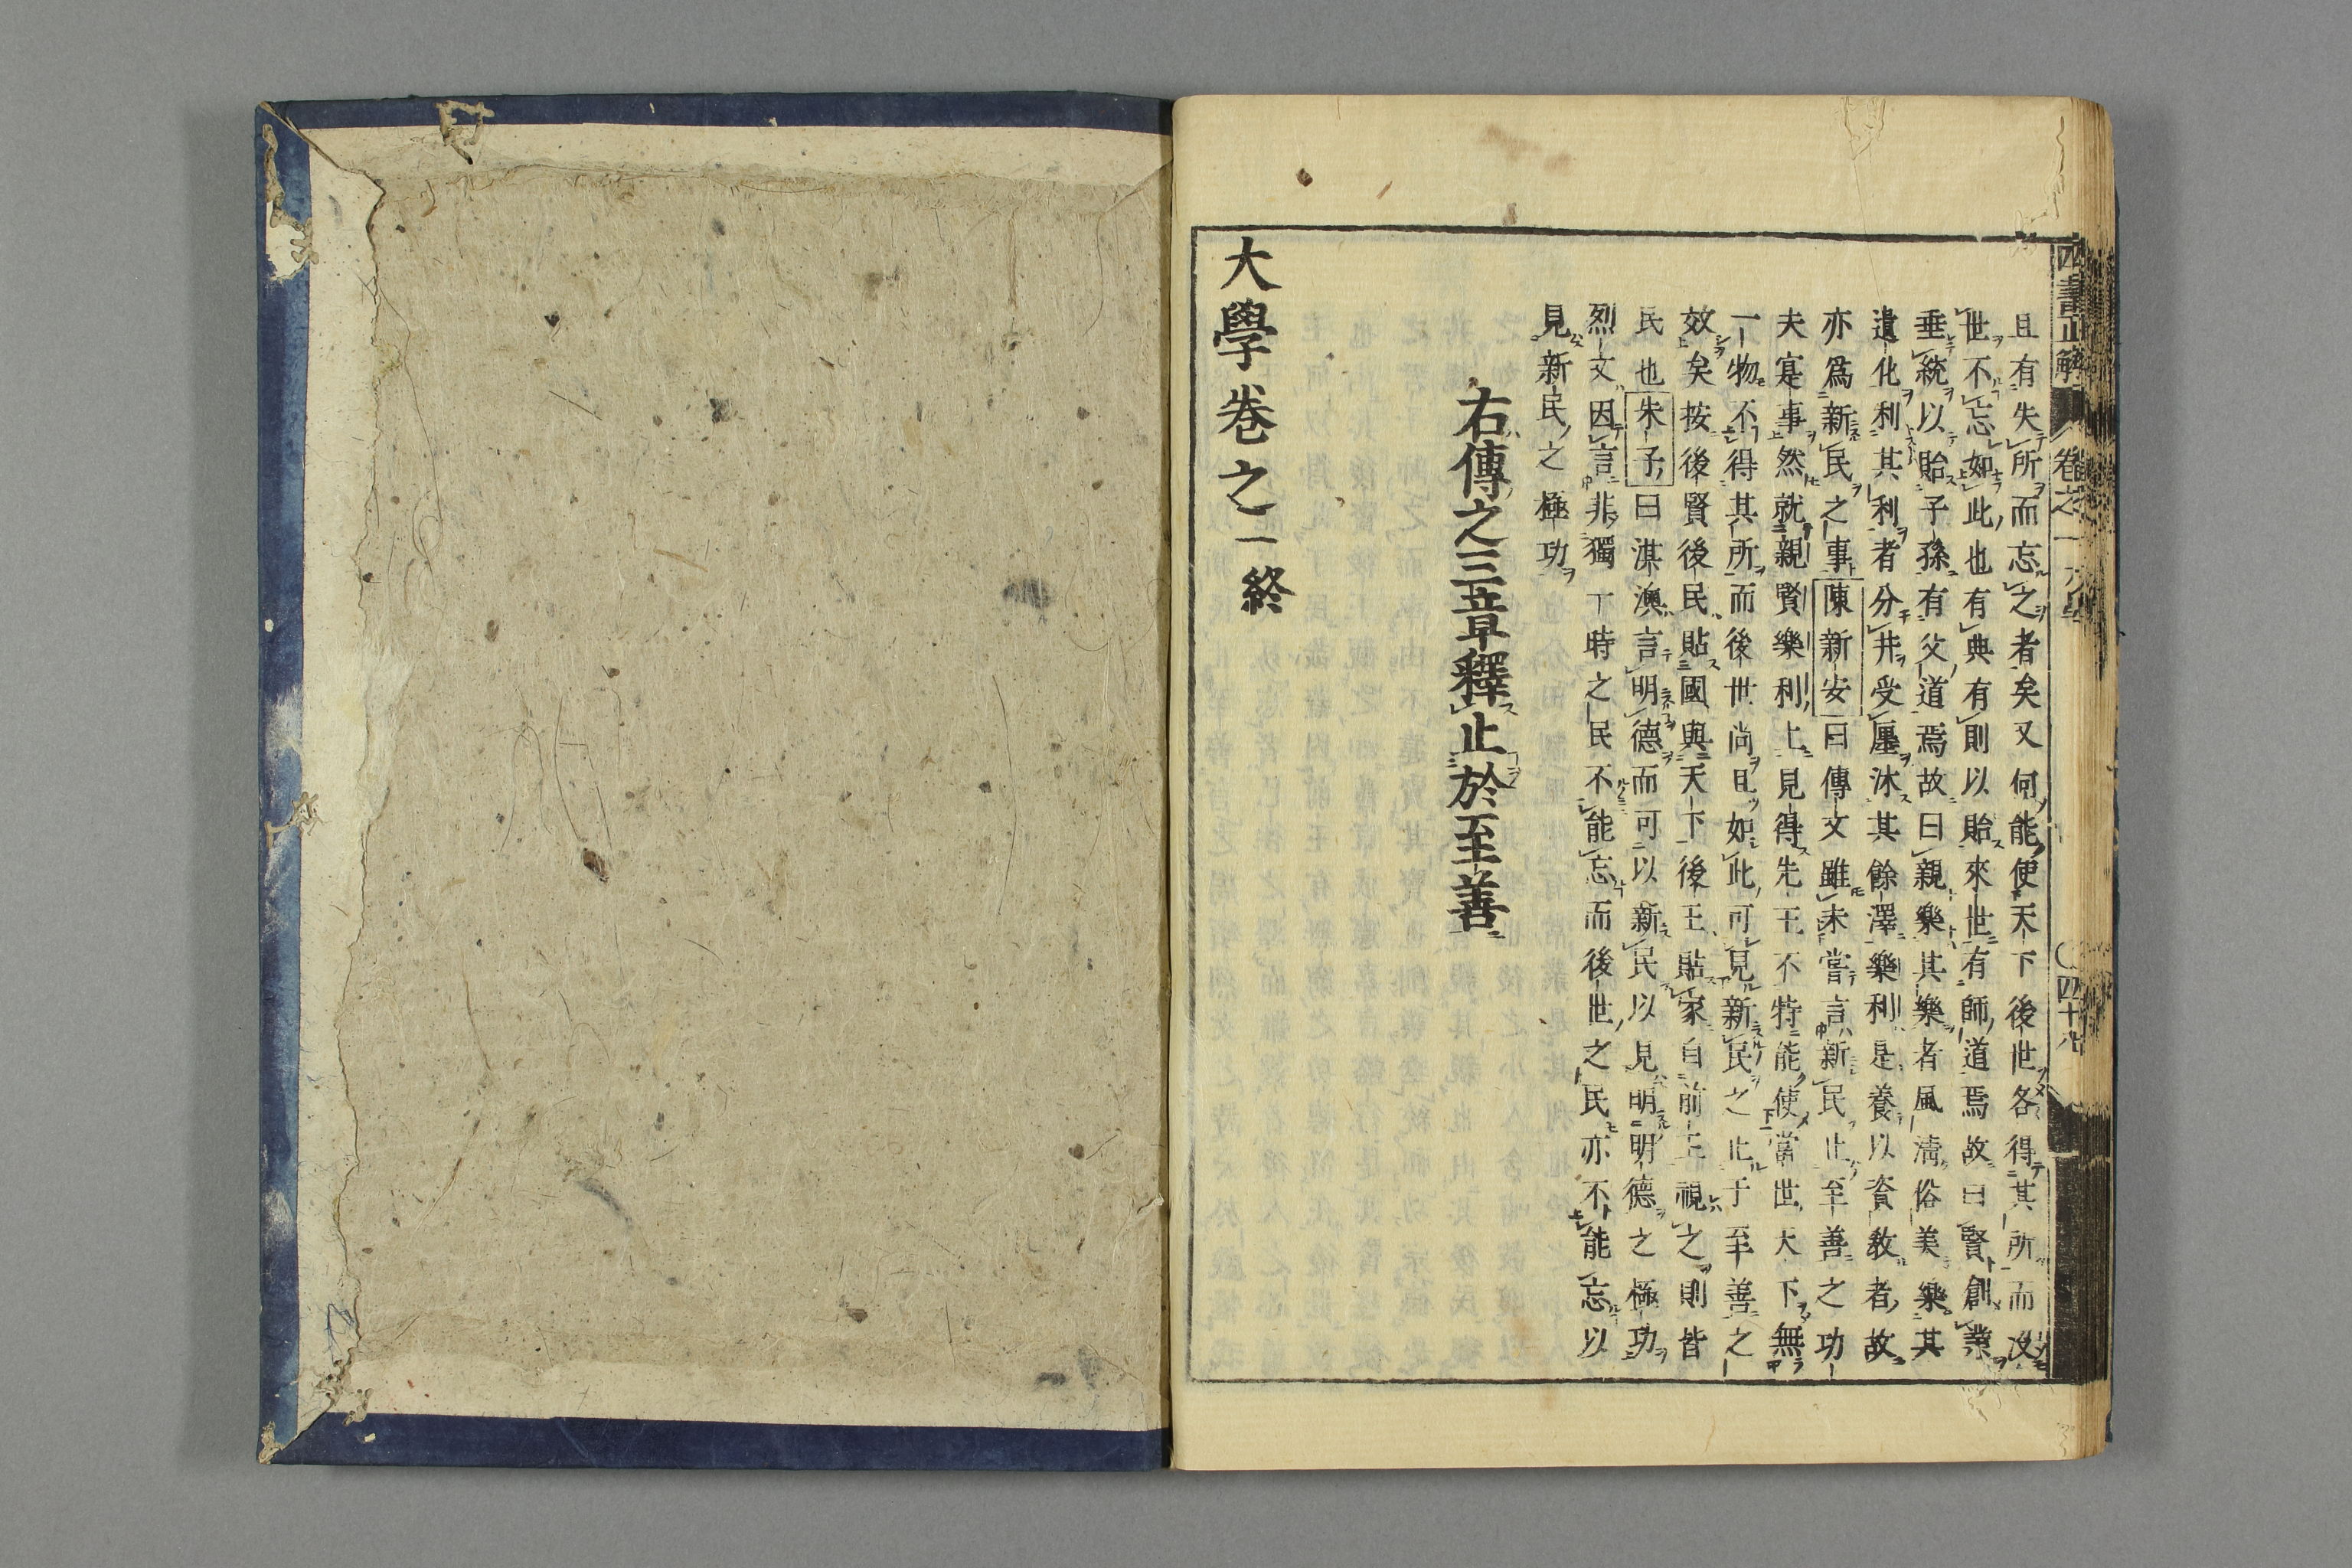 且有失所而忘之者矣又何能使天下後世各得其所而沒
世不忘如此也有典有則以貽來世有師道焉故曰賢創業
垂統以貽子孫有父道焉故曰親樂其樂者風淸俗美樂其
遺化利其利者分井受廛沐其餘澤樂利是養以資敎者故
亦爲新民之事陳新安曰傳文雖未嘗言新民止至善之功
夫寔事然就親賢樂利上見得先王不特能使當世天下無
一物不得其所而後世尚且如此可見新民之止于至善之
效矣按後賢後民貼國與天下後王貼家自前王視之則皆
民也朱子曰淇澳言明德而可以新民以見明明德之極功
烈文因言非獨一時之民不能忘而後世之民亦不能忘以
見新民之極功
右傳之三章釋止於至善
大學卷之一終
四書正解 卷之一 大學 四十九